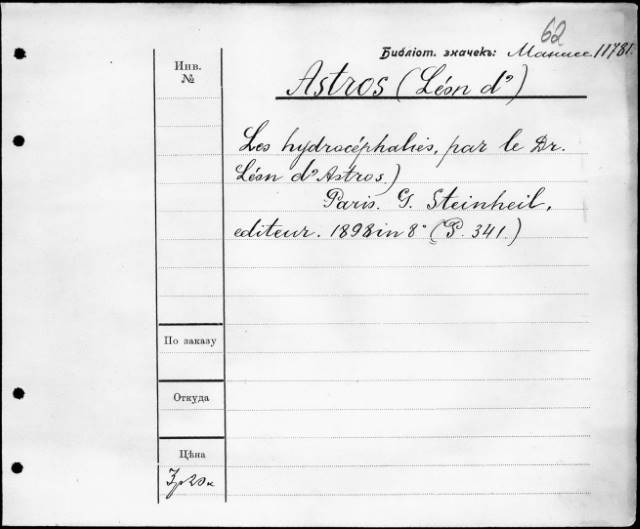 62
Библіот. значекъ: 11781.
Инв.
№
Astros (Léon d')
Les hydrocéphalies, par le Dr.
Léon d'Astros)
Paris. G. Steinheil,
editeur. 1898 in 8° (P. 341.)
По заказу
Откуда
Цѣна